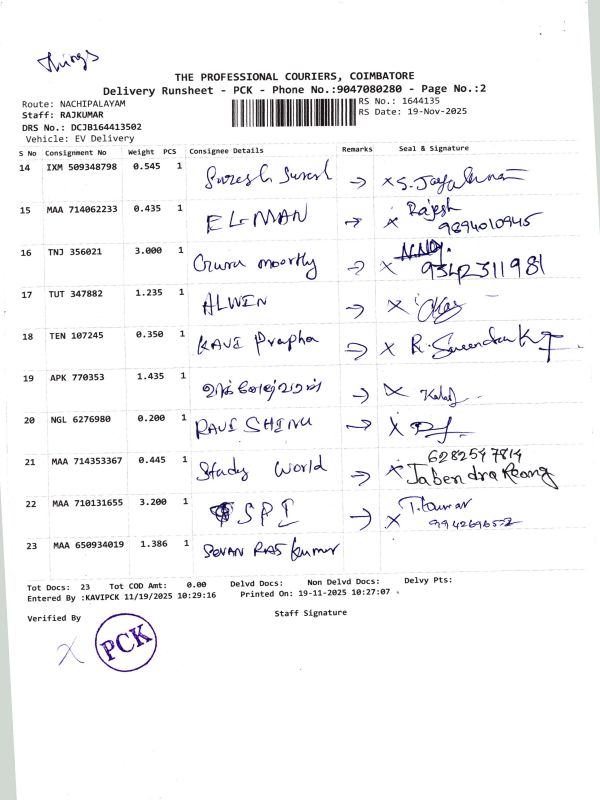 Things
THE PROFESSIONAL COURIERS, COIMBATORE
Delivery Runsheet - PCK - Phone No.:9047080280 - Page No.:2
Route: NACHIPALAYAM RS No.: 1644135
Staff: RAJKUMAR RS Date: 19-Nov-2025
DRS No.: DCJB164413502
Vehicle: EV Delivery
S No Consignment No Weight PCS Consignee Details Remarks Seal & Signature
14 IXM 509348798 0.545 1 Suresh Suresh → x S.
15 MAA 714062233 0.435 1 ELMAN → x Rajesh
9894010945
16 TNJ 356021 3.000 1 Guru moorthy → x
9342311981
17 TUT 347882 1.235 1 ALWIN → x
18 TEN 107245 0.350 1 KAVI Prapha → x R.
19 APK 770353 1.435 1 → x
20 NGL 6276980 0.200 1 RAVI SHINU → x
6282547814
21 MAA 714353367 0.445 1 Study World → x Jabendra Reang
22 MAA 710131655 3.200 1 SPI → x T.
23 MAA 650934019 1.386 1 Kumar
Tot Docs: 23 Tot COD Amt: 0.00 Delvd Docs: Non Delvd Docs: Delvy Pts:
Entered By :KAVIPCK 11/19/2025 10:29:16 Printed On: 19-11-2025 10:27:07
Staff Signature
Verified By
x PCK